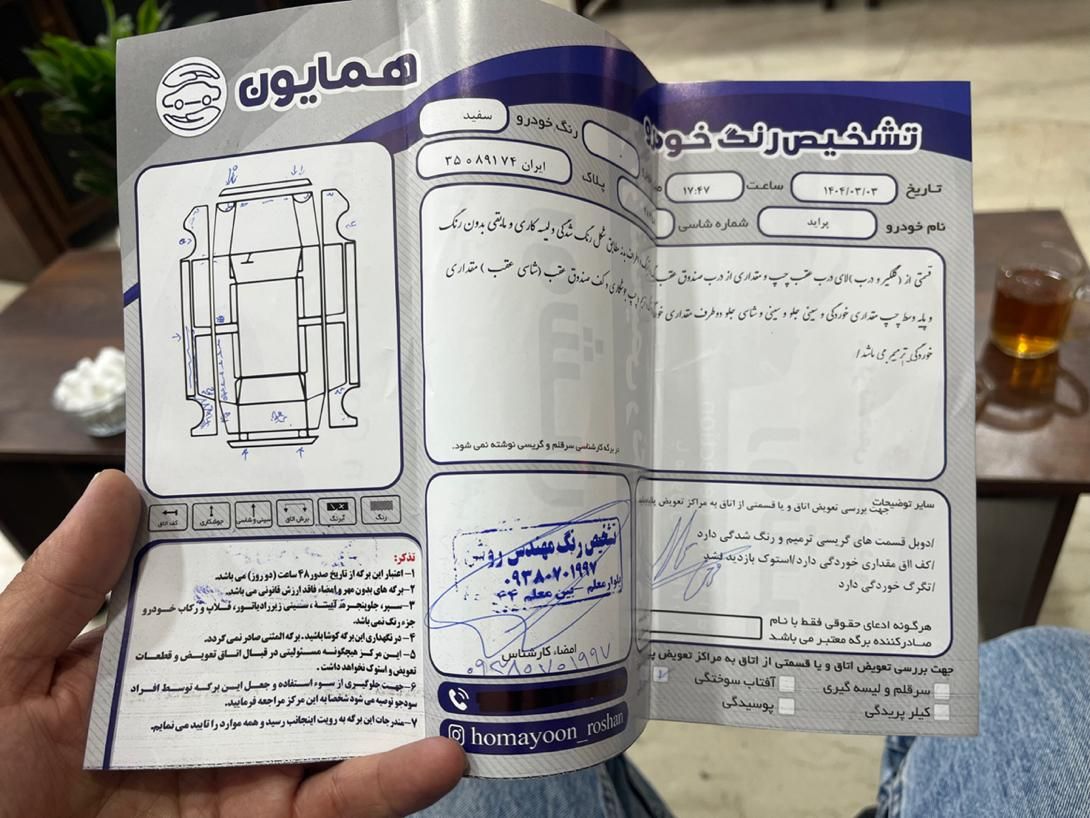 تشخیص رنگ خودرو
همایون
تاریخ ۱۴۰۴/۰۳/۰۳ ساعت ۱۷:۴۷
رنگ خودرو سفید
نام خودرو پراید شماره شاسی
پلاک ایران ۳۵ ۰۸۹۱۷۴
قسمتی از (گلگیر و درب) لای درب عقب چپ و مقداری از درب صندوق عقب
شکل رنگ شدگی و لیسه کاری و مابقی بدون رنگ
و پله وسط چپ مقداری خوردگی و سینی جلو و سینی و شاسی جلو دو طرف مقداری
و کف صندوق عقب (شاسی عقب) مقداری
خوردگی ترمیم می باشد/
در برگه کارشناسی سرقلم و گریسی نوشته نمی شود.
سایر توضیحات
جهت بررسی تعویض اتاق و یا قسمتی از اتاق به مراکز تعویض
/دوبل قسمت های گریسی ترمیم و رنگ شدگی دارد
/کف ااق مقداری خوردگی دارد/استوک بازدید نشد
/تگرگ خوردگی دارد
هرگونه ادعای حقوقی فقط با نام
صادرکننده برگه معتبر می باشد
جهت بررسی تعویض اتاق و یا قسمتی از اتاق به مراکز تعویض
سرقلم و لیسه گیری
آفتاب سوختگی
کیلر پریدگی
پوسیدگی
تشخیص رنگ مهندس روشن
۰۹۳۸۰۷۰۱۹۹۷
بلوار معلم - بین معلم ۴۴
امضاء کارشناس
۰۹۳۸۰۷۰۱۹۹۷
homayoon_roshan
رنگ
آبرنگ
برش اتاق
سینی و شاسی
جوشکاری
کف اتاق
تذکر:
۱- اعتبار این برگه از تاریخ صدور ۴۸ ساعت (دو روز) می باشد.
۲- برگه های بدون مهر و امضاء فاقد ارزش قانونی می باشد.
۳- سپر، جلوپنجره، آیینه، سینی زیررادیاتور، قلاب و رکاب خودرو
جزء رنگ نمی باشد.
۴- در نگهداری این برگه کوشا باشید. برگه المثنی صادر نمی گردد.
۵- این مرکز هیچگونه مسئولیتی در قبال اتاق تعویض و قطعات
تعویض و استوک نخواهد داشت.
۶- جهت جلوگیری از سوء استفاده و جعل این برگه توسط افراد
سودجو توصیه می شود شخصا به این مرکز مراجعه فرمایید.
۷- مندرجات این برگه به رویت اینجانب رسید و همه موارد را تایید می نمایم.